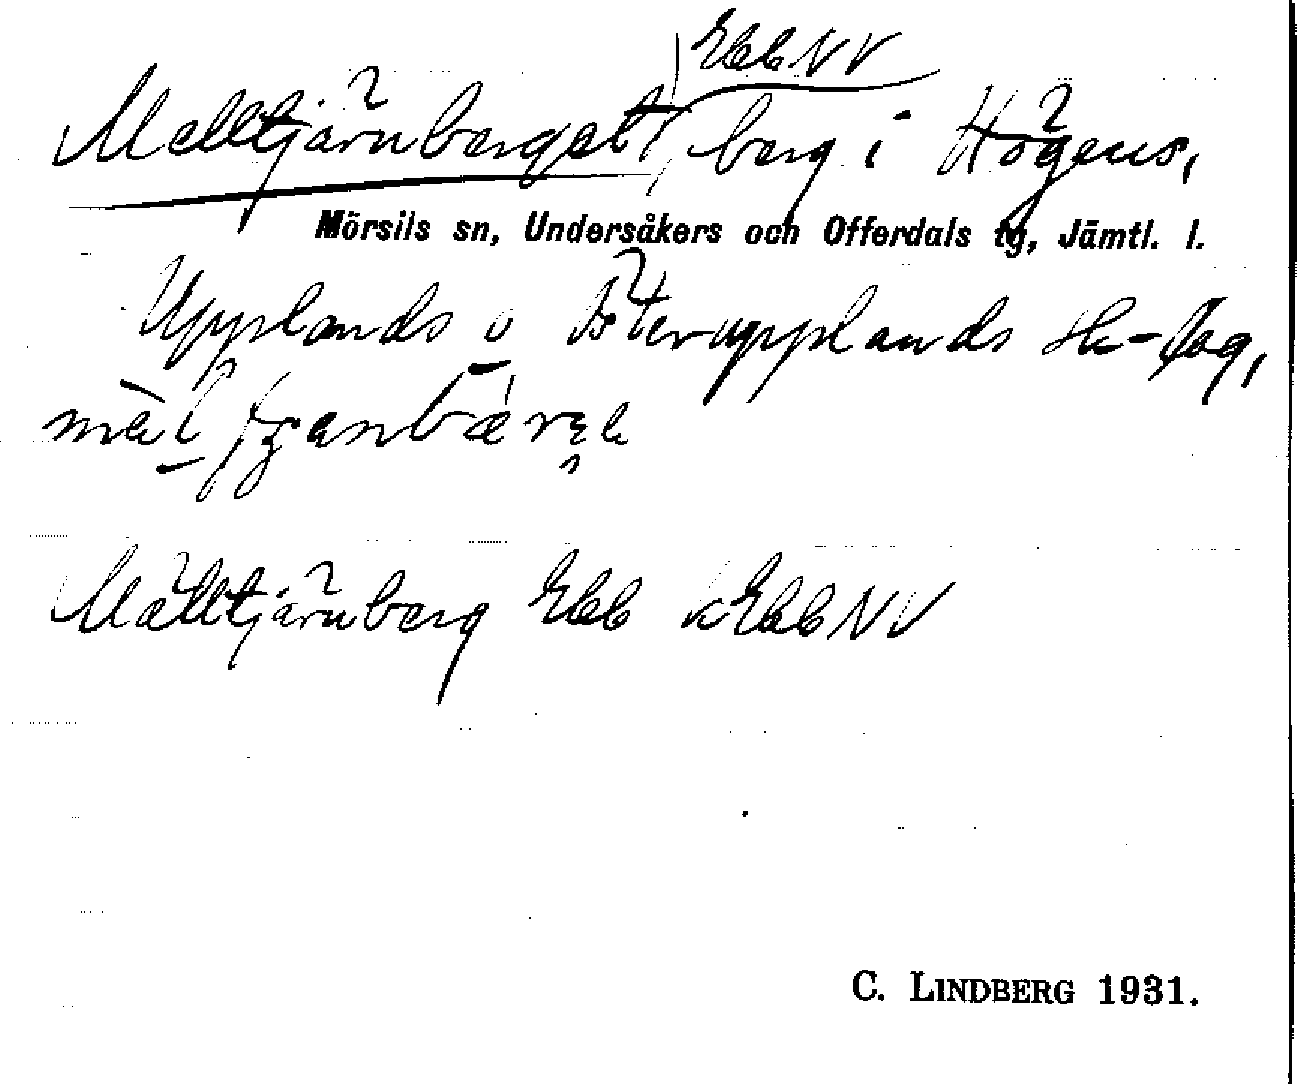 EbbNV
Melltjärnberget, berg i Högens,
Mörsils sn, Undersåkers och Offerdals tg, Jämtl. l.
Upplands o Österupplands sk-lag,
Mälltjärnberg Ebb kEbbNV
C. LINDBERG 1931.